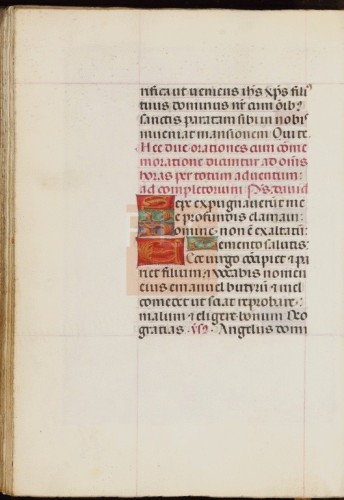 nifica ut veniens ihs xps fili9
tuus dominus nr cum oib9
sanctis paratam sibi in nobis
inveniat mansionem Qui te
Hec due orationes cum come
moratione dicuntur ad oīs
horas per totum adventum:
ad completorium Ps david
Sepe expugnaverūt me
De profundis clamavi:
Domine non ē exaltatū
Memento salutis:
Ecce virgo cōcipiet ⁊ pa
riet filium, ⁊ vocabis nomen
eius emanuel butyrū ⁊ mel
comedet ut sciat reprobare
malum ⁊ eligere bonum Deo
gratias. V. Angelus domi